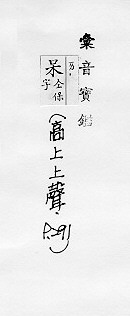 彙音寶鑑
ㄞ
呆 仝保
字
(高上上聲)
P.291